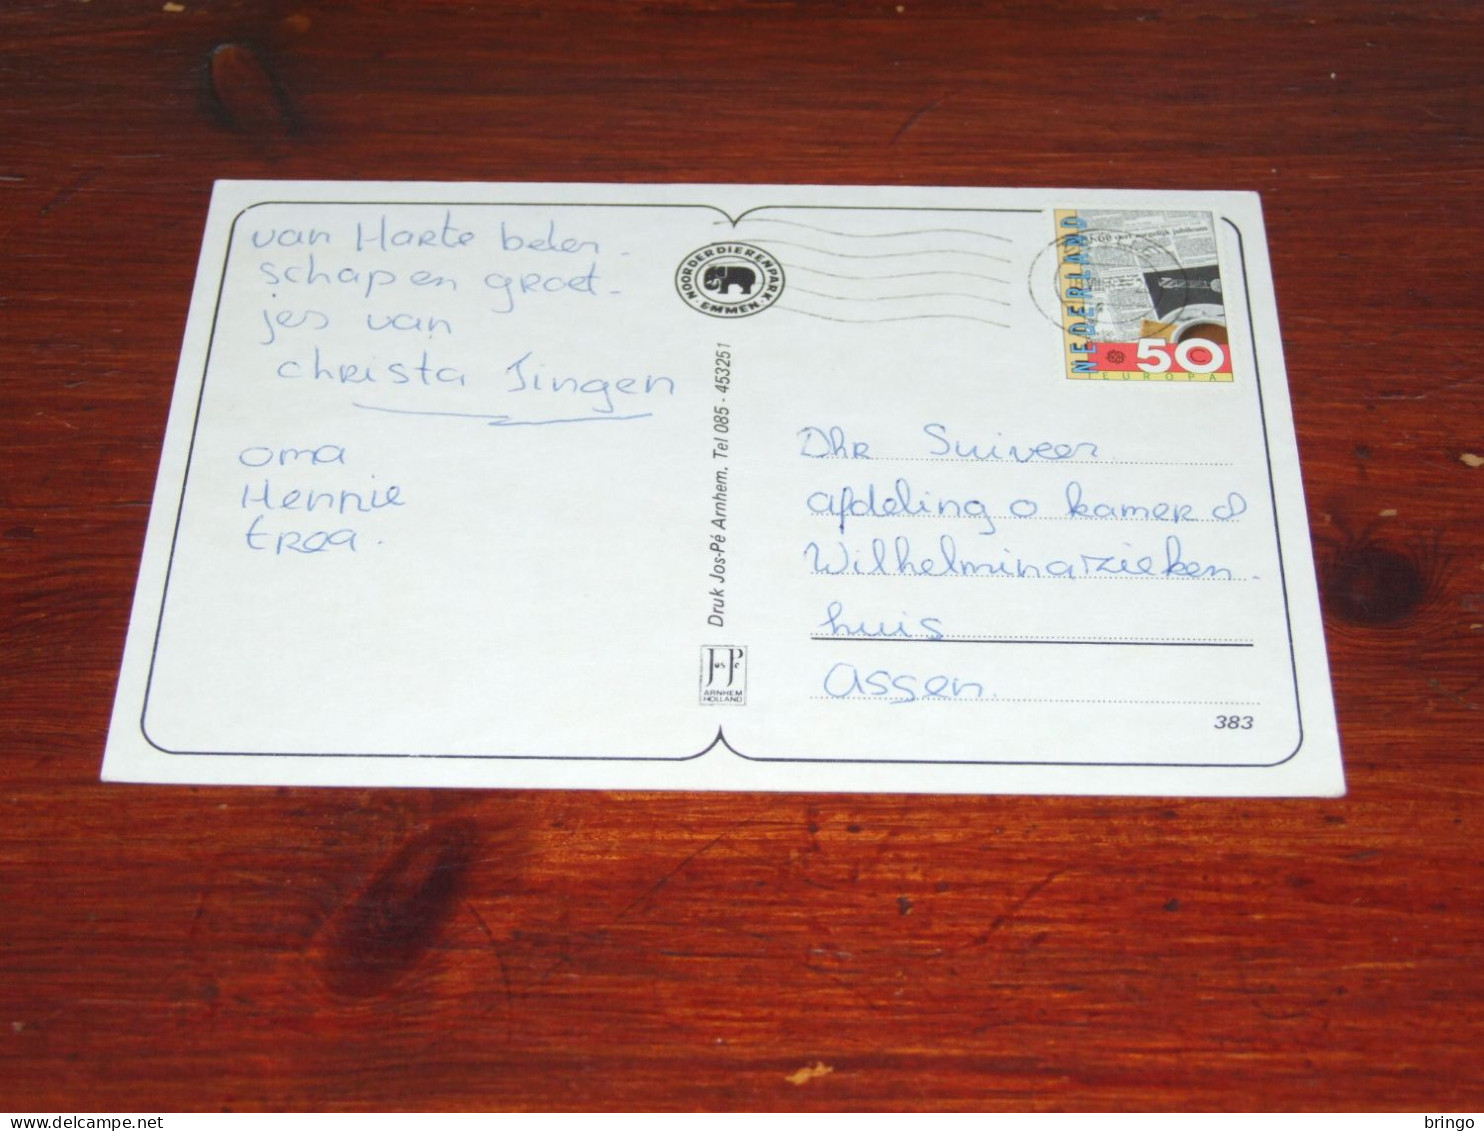 van Harte beter-
schap en groet-
jes van
christa Tingen
oma
Hennie
trea.
NOORDERDIERENPARK
· EMMEN ·
NEDERLAND
50 C
EUROPA
Druk Jos-Pé Arnhem. Tel 085 - 453251
Jos Pé
ARNHEM
HOLLAND
Dhr Suiveer
afdeling O kamer 8
Wilhelminazieken-
huis
Assen.
383
www.delcampe.net
bringo